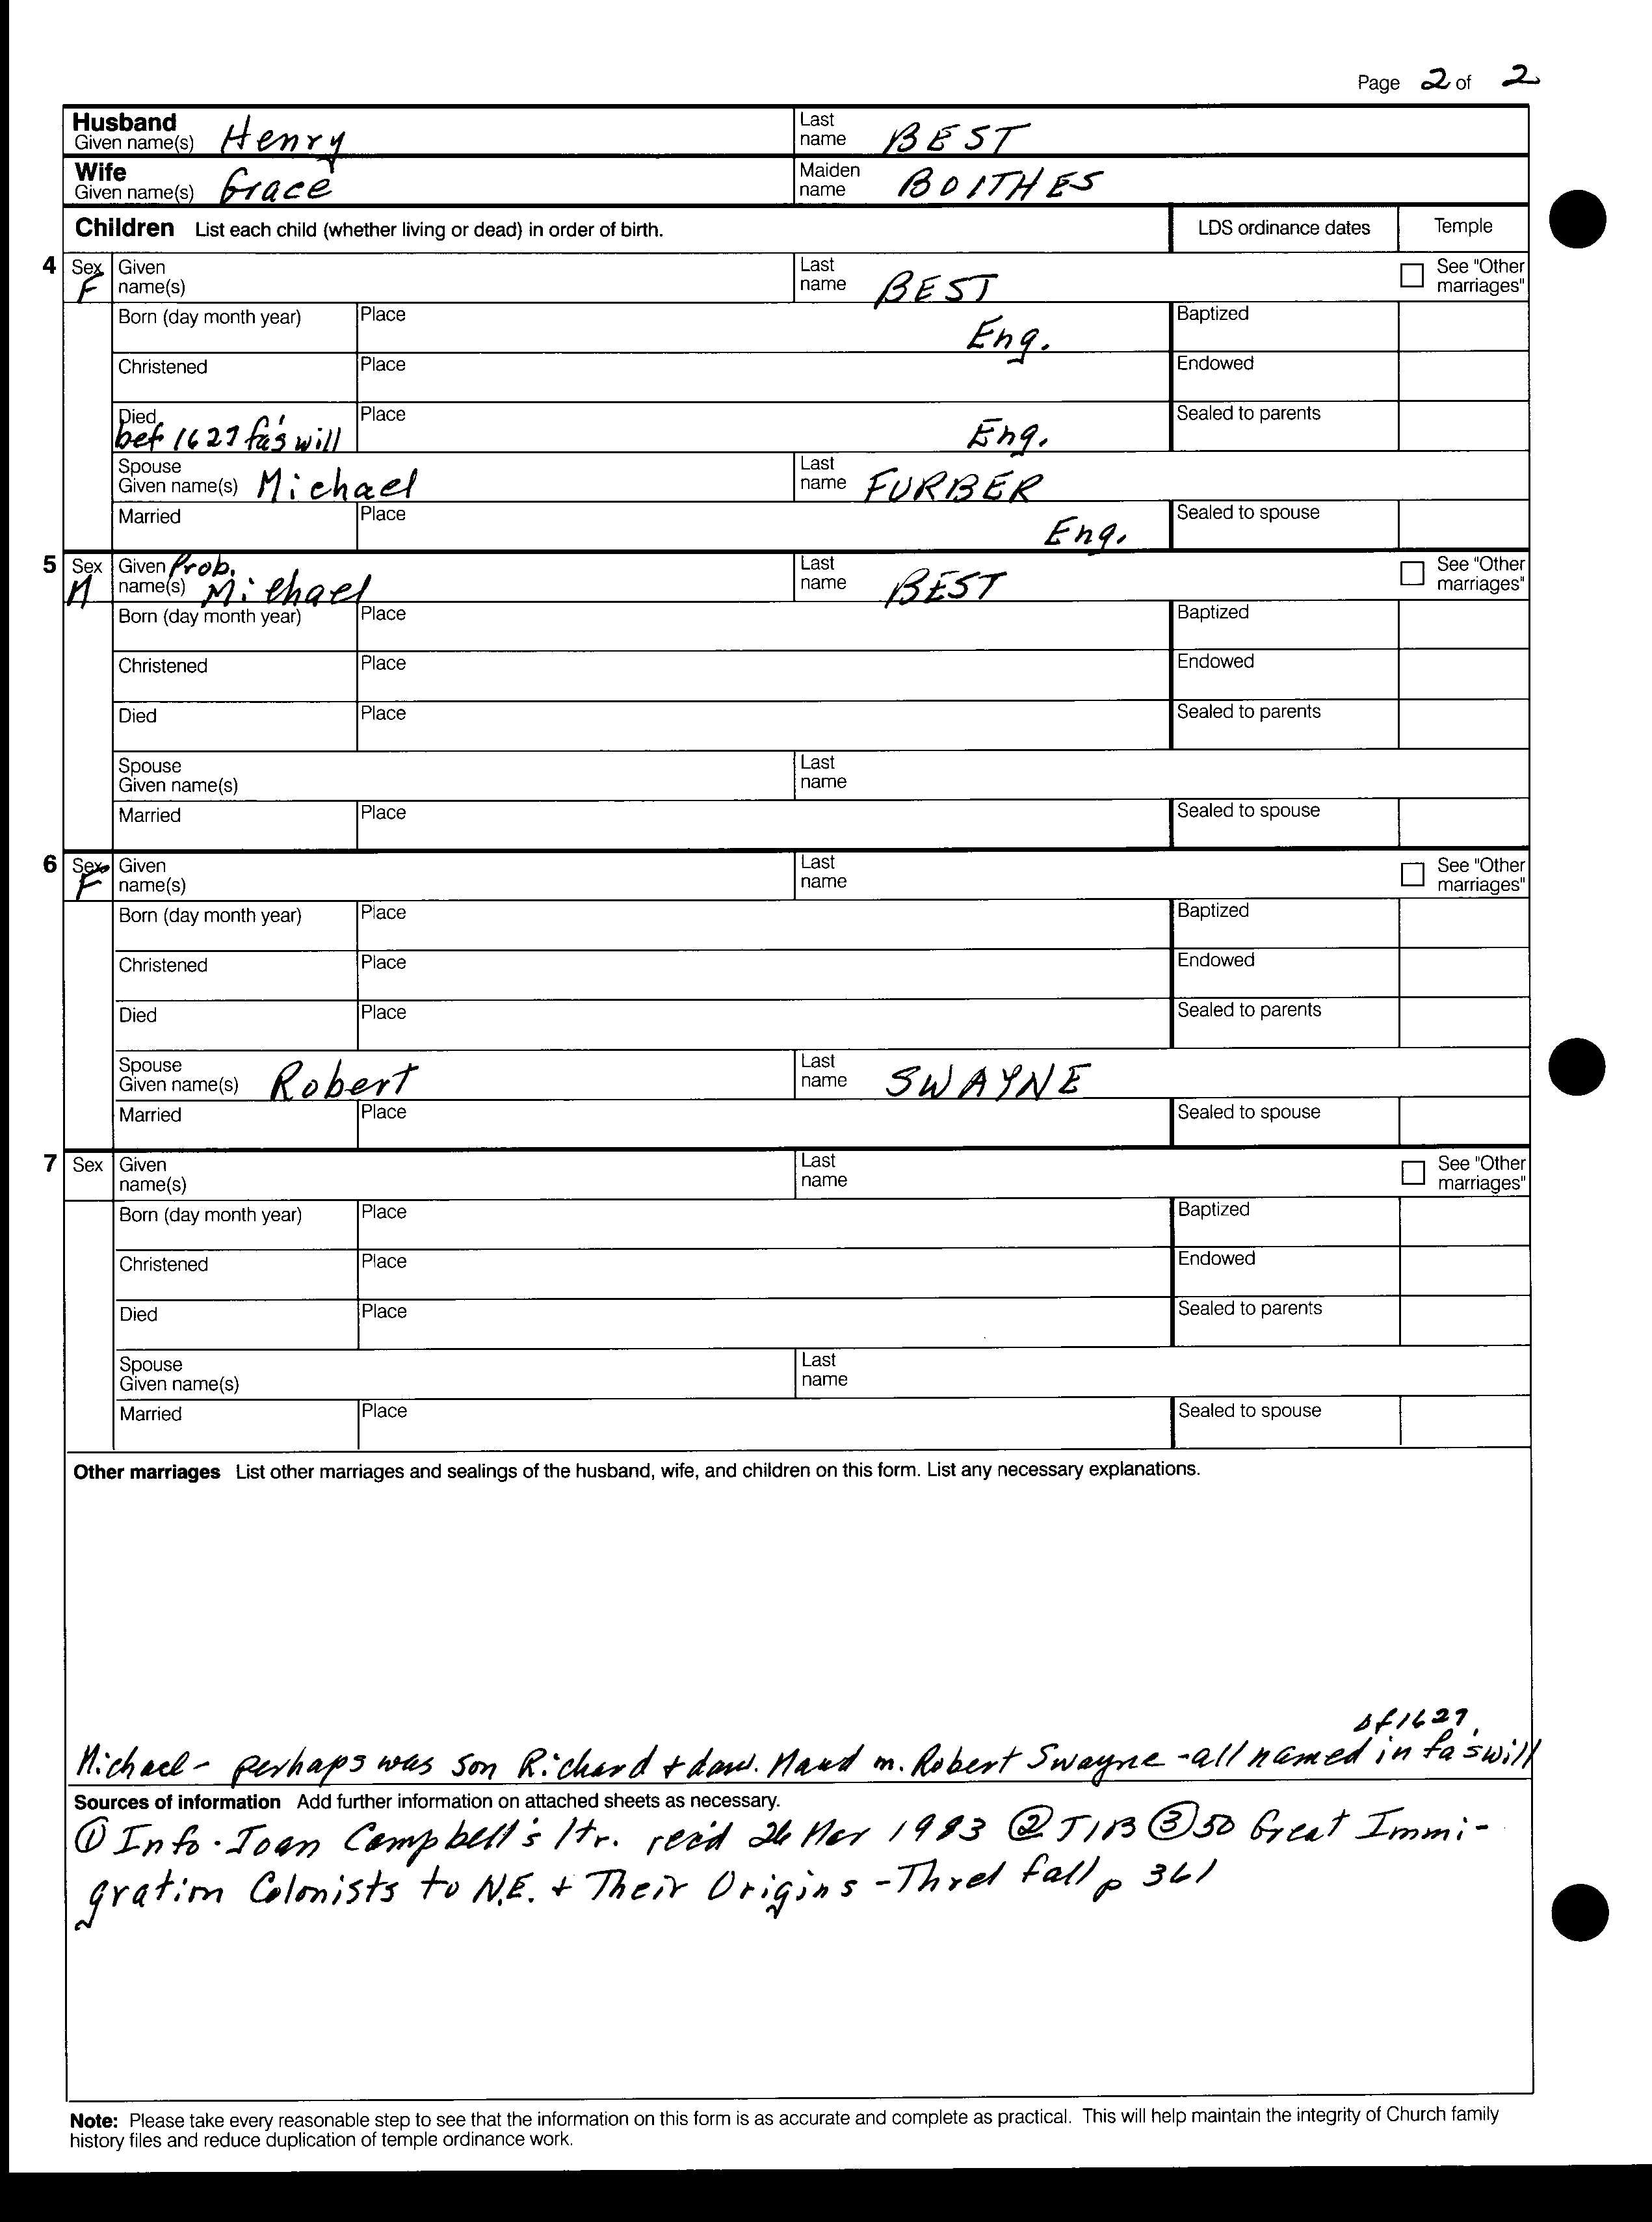 Page 2 of 2
Husband
Given name(s) Henry Last name BEST
Wife
Given name(s) Grace Maiden name BOITHES
Children List each child (whether living or dead) in order of birth. LDS ordinance dates Temple
4 Sex F Given name(s) Last name BEST See "Other marriages"
Born (day month year) Place Eng. Baptized
Christened Place Endowed
Died bef 1627 fa's will Place Eng. Sealed to parents
Spouse Given name(s) Michael Last name FURBER
Married Place Eng. Sealed to spouse
5 Sex M Given name(s) Prob. Michael Last name BEST See "Other marriages"
Born (day month year) Place Baptized
Christened Place Endowed
Died Place Sealed to parents
Spouse Given name(s) Last name
Married Place Sealed to spouse
6 Sex F Given name(s) Last name See "Other marriages"
Born (day month year) Place Baptized
Christened Place Endowed
Died Place Sealed to parents
Spouse Given name(s) Robert Last name SWAYNE
Married Place Sealed to spouse
7 Sex Given name(s) Last name See "Other marriages"
Born (day month year) Place Baptized
Christened Place Endowed
Died Place Sealed to parents
Spouse Given name(s) Last name
Married Place Sealed to spouse
Other marriages List other marriages and sealings of the husband, wife, and children on this form. List any necessary explanations.
1627
Michael - perhaps was son Richard + dau. Maud m. Robert Swayne - all named in fa's will
Sources of information Add further information on attached sheets as necessary.
① Info. Joan Campbell's ltr. rec'd 26 Mar 1983 ② TIB ③ 50 Great Immi-
gration Colonists to N.E. + Their Origins - Threlfall p 361
Note: Please take every reasonable step to see that the information on this form is as accurate and complete as practical. This will help maintain the integrity of Church family
history files and reduce duplication of temple ordinance work.